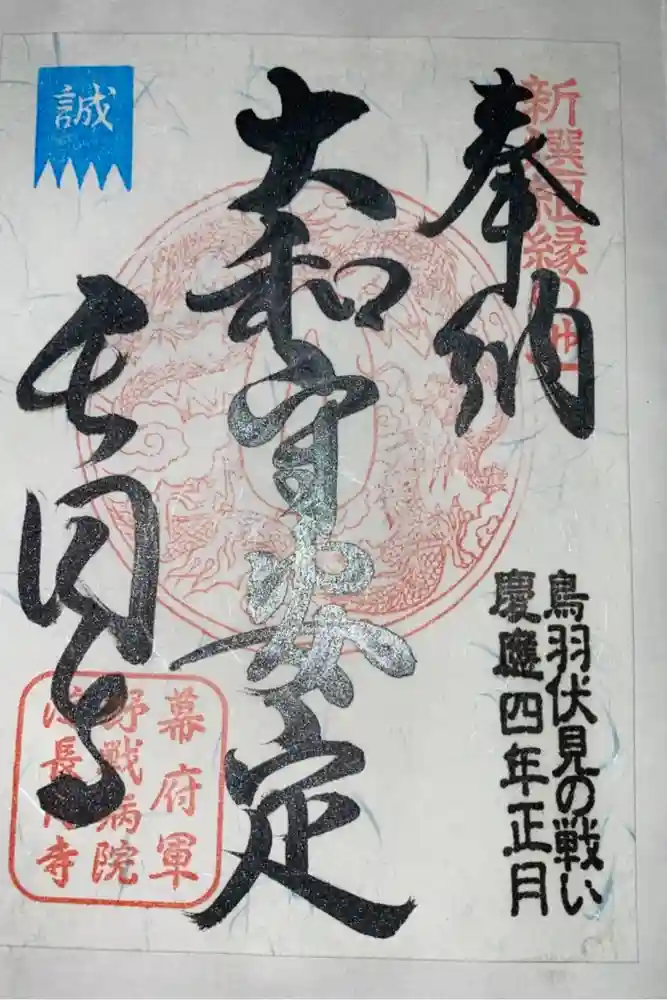 新選組縁の地
奉納
鳥羽伏見の戦い
慶應四年正月
大和守安定
誠
長円寺
幕府軍
野戦病院
長円寺